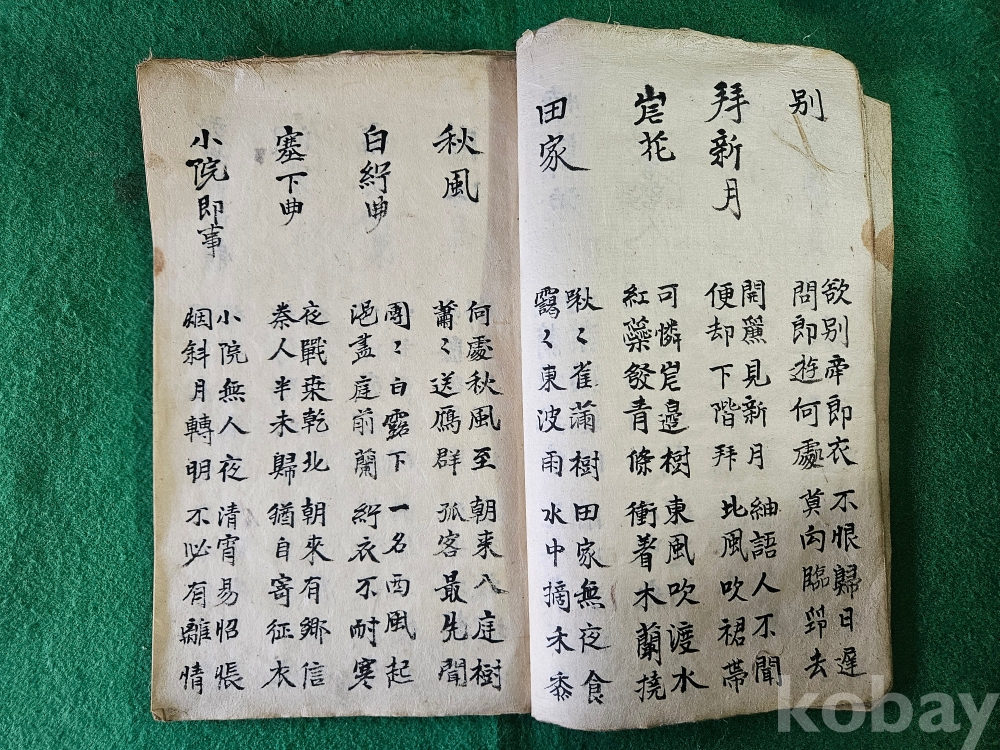 別
欲別牽郎衣
問郎遊何處
不恨歸日遲
莫向臨邛去
拜新月
開簾見新月
便却下階拜
細語人不聞
北風吹裙帶
岸花
可憐岸邊樹
紅蘂發青條
東風吹渡水
衝着木蘭橈
田家
啾〻雀滿樹
靄〻東波雨
田家無夜食
水中摘禾黍
秋風
何處秋風至
蕭〻送鴈群
朝來入庭樹
孤客最先聞
白紵曲
團〻白露下
浥盡庭前蘭
一名西風起
紵衣不耐寒
塞下曲
夜戰桒乾北
秦人半未歸
朝來有鄉信
猶自寄征衣
小院即事
小院無人夜
烟斜月轉明
清宵易怊悵
不必有離情
kobay